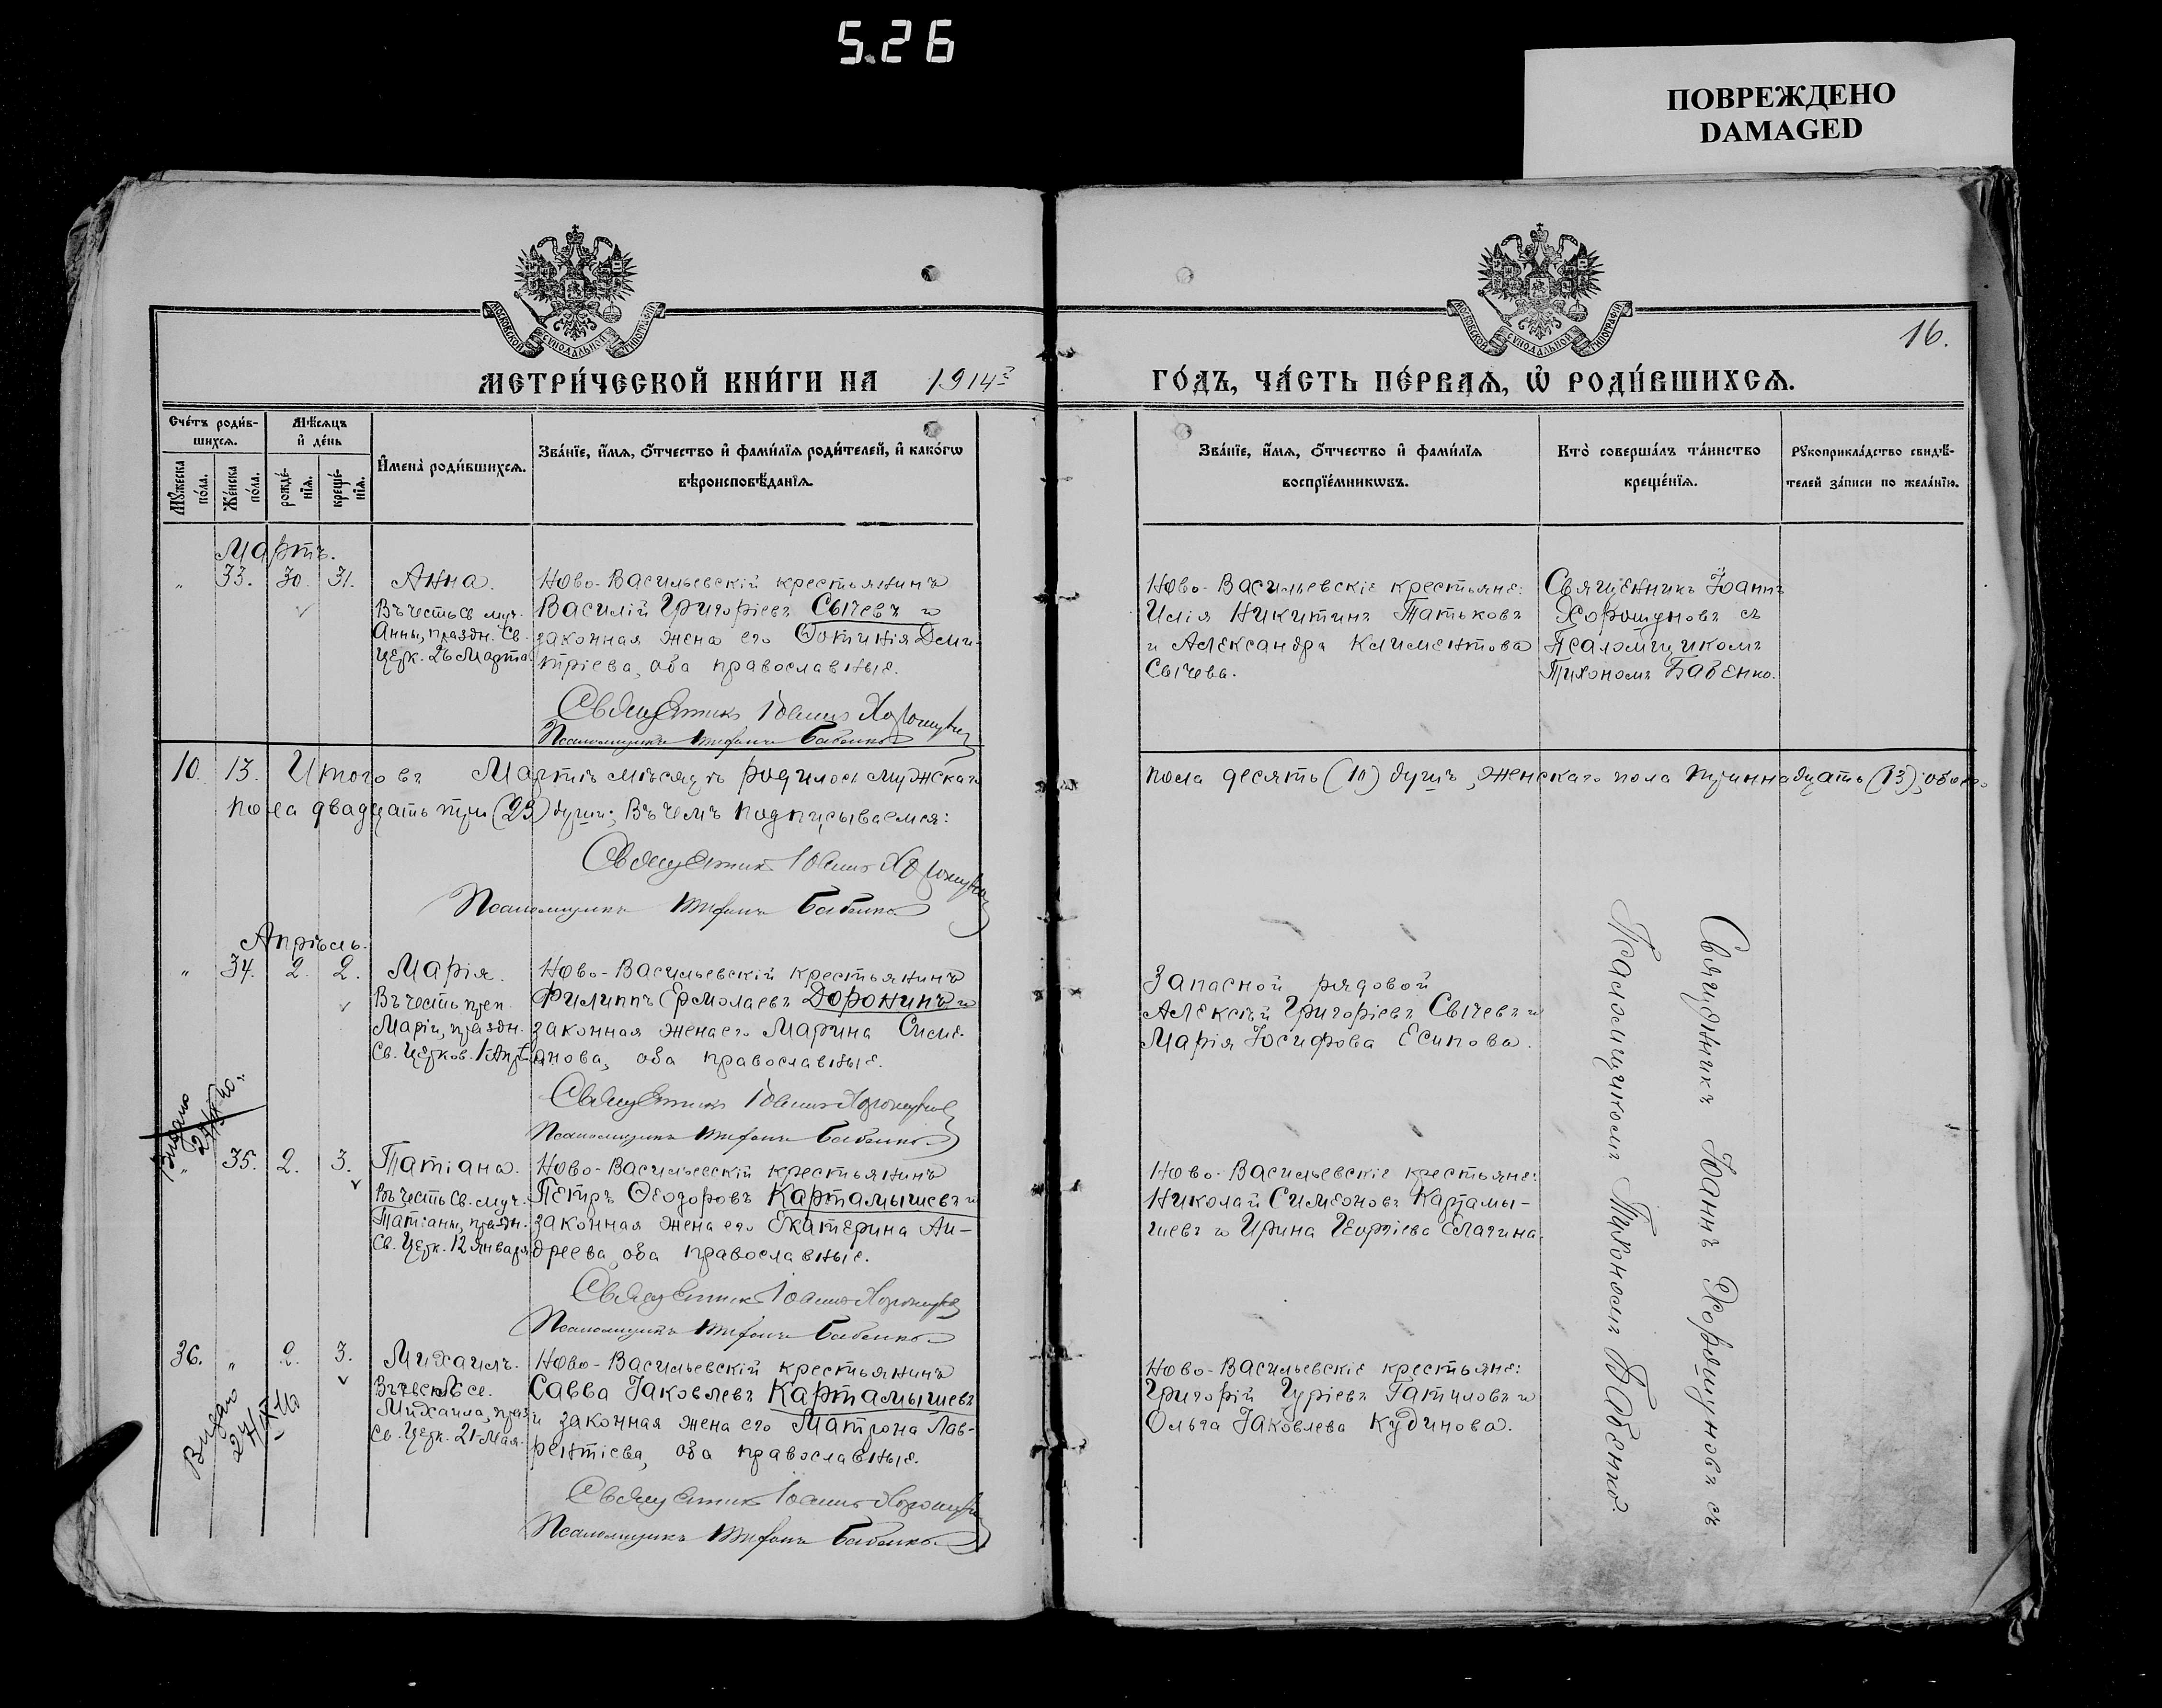 5.26
ПОВРЕЖДЕНО
DAMAGED
МОСКОВСКОЙ СѴНОДАЛЬНОЙ ТИПОГРАФІИ
МОСКОВСКОЙ СѴНОДАЛЬНОЙ ТИПОГРАФІИ
16.
МЕТРИ́ЧЕСКОЙ КНИ́ГИ НА 1914й
ГО́ДЪ, ЧА́СТЬ ПЕ́РВАѦ, Ѡ РОДИ́ВШИХСѦ.
Сче́тъ роди́в-
шихсѧ.
Мꙋ́жеска
по́ла.
Же́нска
по́ла.
Мѣ́сѧцъ
и҆ де́нь
рожде́-
нїѧ.
креще́-
нїѧ.
И҆мена̀ роди́вшихсѧ.
Зва́нїе, и҆́мѧ, ѻ҆́тчество и҆ фами́лїѧ роди́телей, и҆ како́гѡ
вѣроисповѣ́данїѧ.
Зва́нїе, и҆́мѧ, ѻ҆́тчество и҆ фами́лїѧ
воспрїе́мникѡвъ.
Кто̀ соверша́лъ та́инство
креще́нїѧ.
Рꙋкоприкла́дство свидѣ́-
телей за́писи по жела́нїю.
Мартъ.
" 33. 30. 31. Анна.
Въ честь Св. муч.
Анны, праздн. Св.
Церк. 26 Марта
Ново-Васильевскій крестьянинъ
Василій Григоріевъ Сычевъ и
законная жена его Фотинія Дими-
тріева, оба православные.
Священникъ Іоаннъ Хорошуновъ
Псаломщикъ Тихонъ Бабенко
Ново-Васильевскіе крестьяне:
Илія Никитинъ Татьковъ
и Александра Климентова
Сычева.
Священникъ Іоаннъ
Хорошуновъ съ
Псаломщикомъ
Тихономъ Бабенко.
10. 13. Итого въ Мартѣ мѣсяцѣ родилось мужскаго
пола десять (10) душъ, женскаго пола тринадцать (13), обоего
пола двадцать три (23) души; Въ чемъ подписываемся:
Священникъ Іоаннъ Хорошуновъ
Псаломщикъ Тихонъ Бабенко
Апрѣль.
" 34. 2. 2. Марія.
Въ честь преп.
Маріи, праздн.
Св. Церков. 1 Апр.
Ново-Васильевскій крестьянинъ
Филиппъ Ермолаевъ Доронинъ и
законная жена его Марина Симе-
онова, оба православные.
Священникъ Іоаннъ Хорошуновъ
Псаломщикъ Тихонъ Бабенко
Запасной рядовой
Алексій Григоріевъ Сычевъ и
Марія Іосифова Есипова.
Видано
" 35. 2. 3. Татіана.
Въ честь Св. муч.
Татіаны, праздн.
Св. Церк. 12 Января
Ново-Васильевскій крестьянинъ
Петръ Ѳеодоровъ Картамышевъ и
законная жена его Екатерина Ан-
дреева, оба православные.
Священникъ Іоаннъ Хорошуновъ
Псаломщикъ Тихонъ Бабенко
Ново-Васильевскіе крестьяне:
Николай Симеоновъ Картамы-
шевъ и Ирина Георгіева Елагина.
36. " 2. 3. Михаилъ.
Въ честь Св.
Михаила, празд.
Св. Церк. 21 Мая.
Видано
24/IX 40
Ново-Васильевскій крестьянинъ
Савва Іаковлевъ Картамышевъ
и законная жена его Матрона Лав-
рентіева, оба православные.
Священникъ Іоаннъ Хорошуновъ
Псаломщикъ Тихонъ Бабенко
Ново-Васильевскіе крестьяне:
Григорій Гуріевъ Гатиловъ и
Ольга Іаковлева Кудинова.
Священникъ Іоаннъ Хорошуновъ съ
Псаломщикомъ Тихономъ Бабенко.